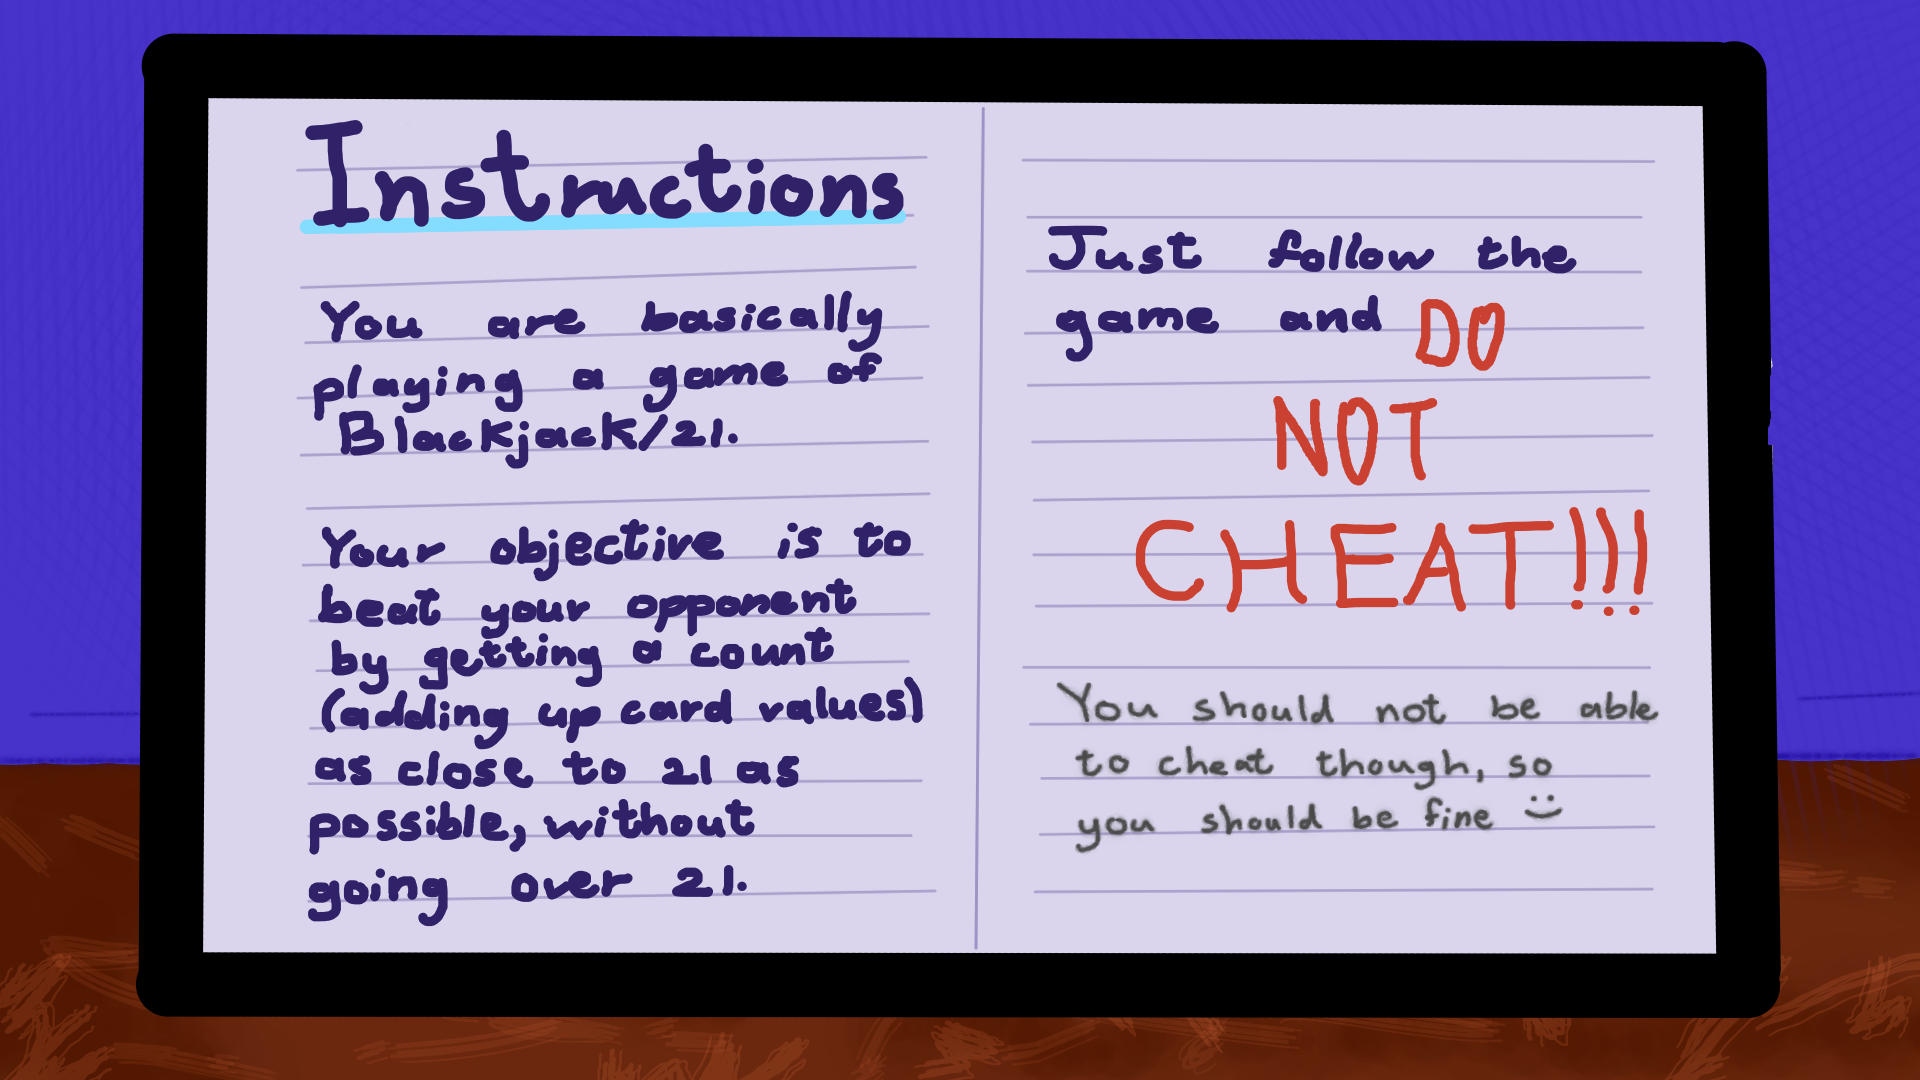 Instructions
You are basically
playing a game of
Blackjack/21.
Your objective is to
beat your opponent
by getting a count
(adding up card values)
as close to 21 as
possible, without
going over 21.
Just follow the
game and DO
NOT
CHEAT!!!
You should not be able
to cheat though, so
you should be fine :)